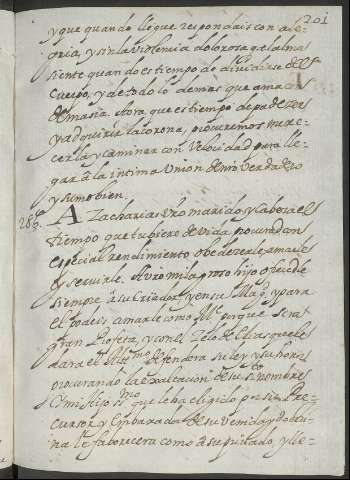 201
y que quando llegue respondais con ale-
gria, y sin la violencia dolorosa q̃ el alma
siente quando es tiempo de dividirse del
Cuerpo, y de todo lo demas que ama con
demasia. Aora que es tiempo de padecer
y adquirir la corona, procuremos mere-
cerla y caminar con velocidad para lle-
gar à la intima Union de nrõ verdadero
y sumo bien.
A Zacharias vrõ marido, y Cabeza el
tiempo que tubiere de vida, procurad con
especial rendimiento obedezerle, amarle
y servirle. A vrõ milagroso hijo ofrecedle
siempre à su Criador, y en su Magᵈ y para
el podeis amarle como Mᵉ porque serà
gran Profeta, y con el Zelo de Elias que le
darà el Altᵐᵒ defenderà su ley y su honra
procurando la exaltacion de su sᵗᵒ nombre
y mi Hijo SSᵐᵒ que le ha eligido por su Pre-
cursor y Embaxador de su venida y doctri-
na le favorecerà como à su privado, y lle-